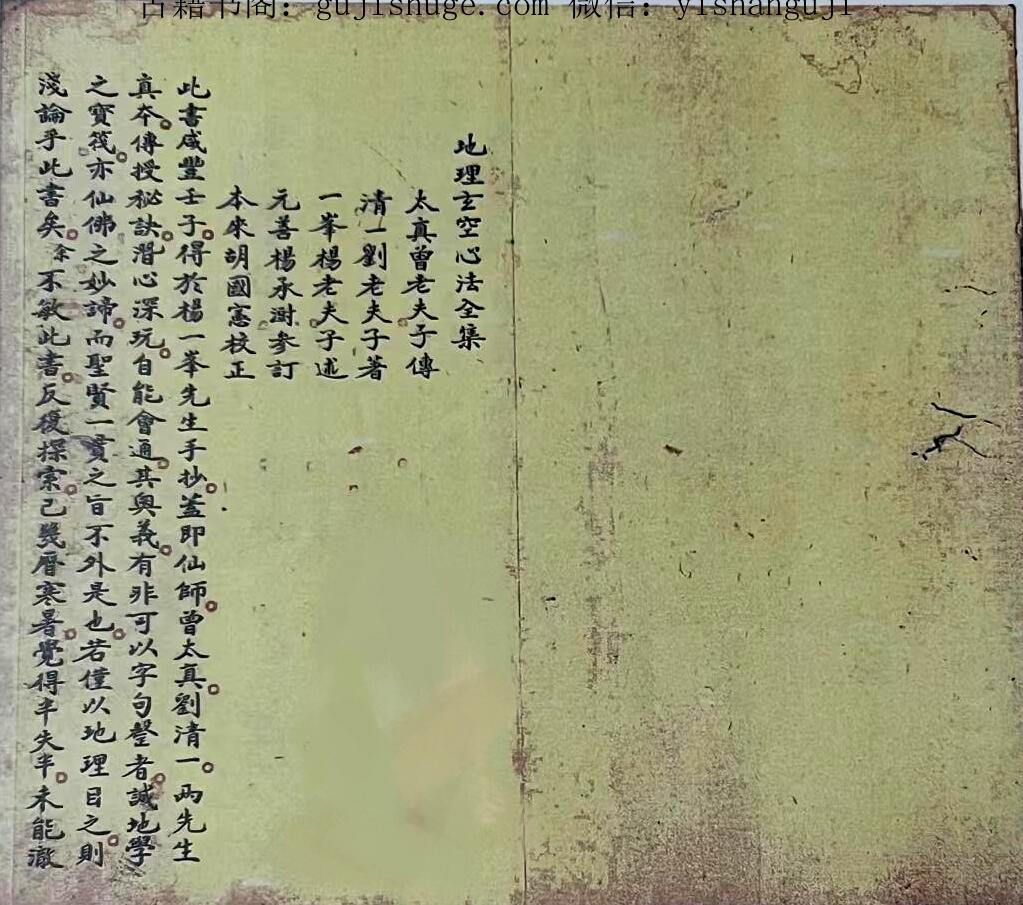 古籍书阁：gujishuge.com 微信：yishanguji
地理玄空心法全集
太真曾老夫子傳
清一劉老夫子著
一峯楊老夫子述
元善楊承澍參訂
本來胡國憲校正
此書咸豐壬子得於楊一峯先生手抄蓋即仙師曾太真劉清一兩先生
真本傳授秘訣潛心深玩自能會通其奧義有非可以字句罄者誠地學
之寶筏亦仙佛之妙諦而聖賢一貫之旨不外是也若僅以地理目之則
淺論乎此書矣余不敏此書反復探索已幾曆寒暑覺得半失半未能澈